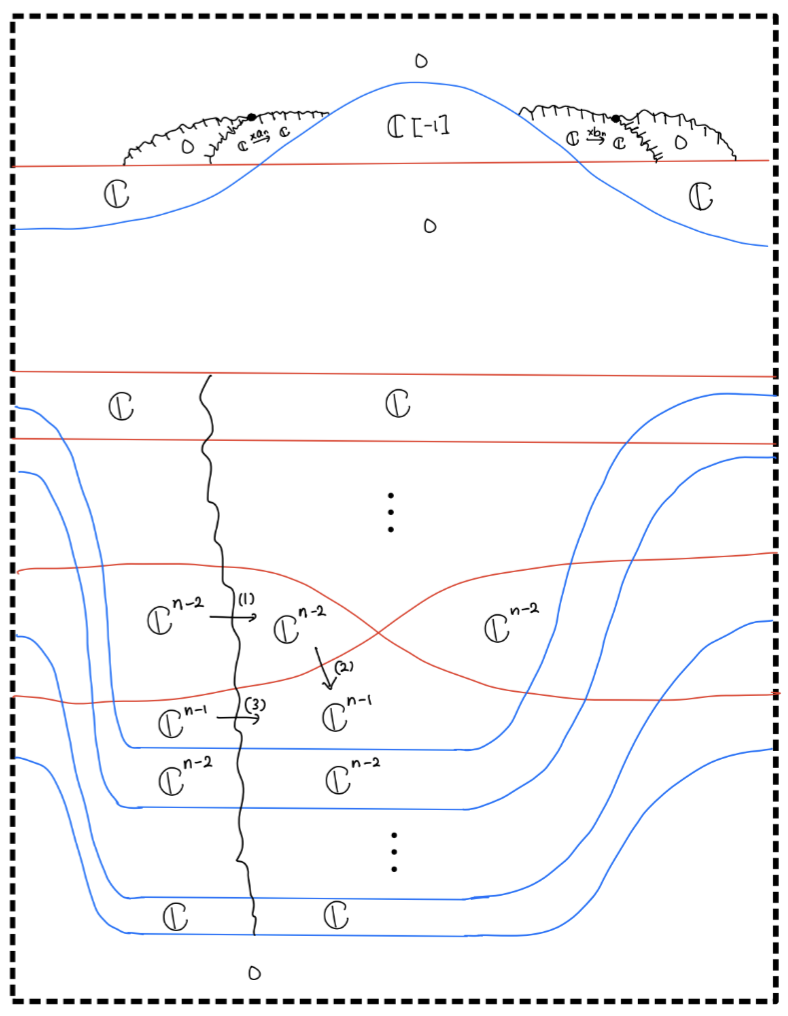 0
ℂ[-1]
0 ℂ ×aₙ→ ℂ
ℂ ×bₙ→ ℂ 0
ℂ ℂ
0
ℂ ℂ
⋮
ℂⁿ⁻² (1)→ ℂⁿ⁻² ℂⁿ⁻²
(2)
ℂⁿ⁻¹ (3)→ ℂⁿ⁻¹
ℂⁿ⁻² ℂⁿ⁻²
⋮
ℂ ℂ
0